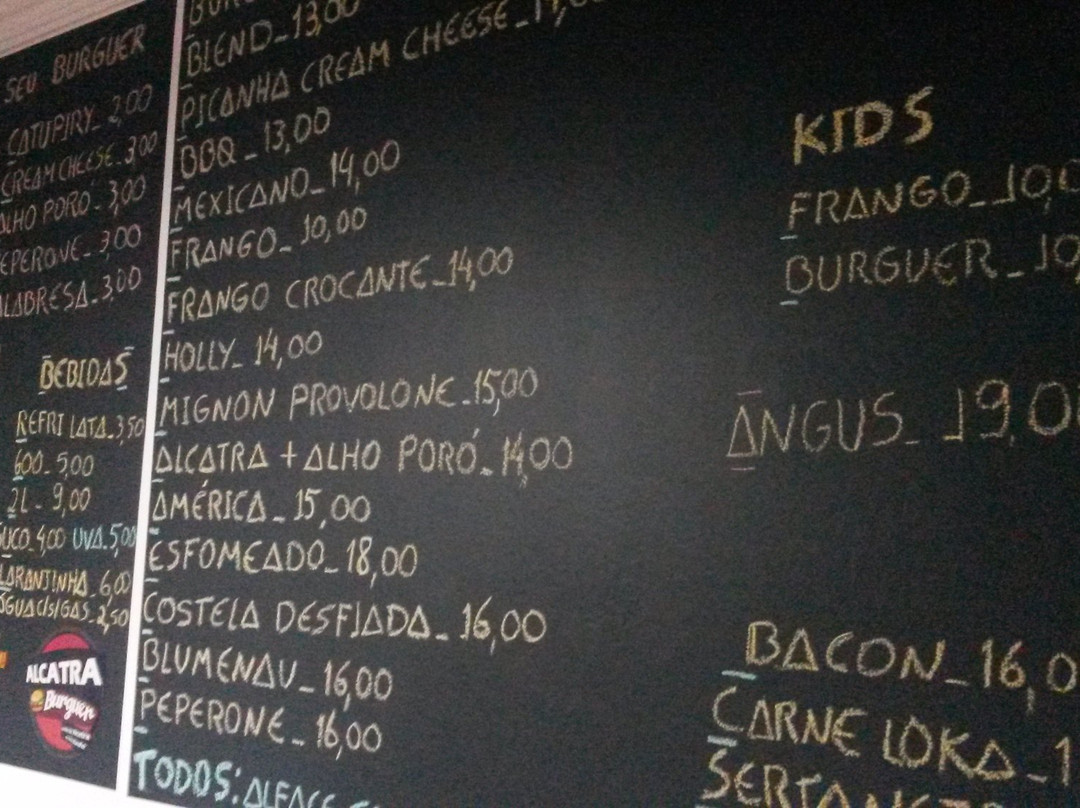 SEU BURGUER
CATUPIRY_ 3,00
CREAM CHEESE_3,00
ALHO PORÓ_ 3,00
EPERONE_3,00
ALABRESA_3,00
BEBIDAS
REFRI LATA_3,50
600_5,00
2L - 9,00
SUCO_4,00 UVA_5,00
LARANJINHA_6,00
ÁGUA C/S/GÁS_2,50
ALCATRA
Burguer
BLEND_13,00
PICANHA CREAM CHEESE_
BBQ_13,00
MEXICANO_14,00
FRANGO_10,00
FRANGO CROCANTE_14,00
HOLLY_14,00
MIGNON PROVOLONE_15,00
ALCATRA + ALHO PORÓ_14,00
AMÉRICA_15,00
ESFOMEADO_18,00
COSTELA DESFIADA_16,00
BLUMENAU_16,00
PEPERONE_16,00
TODOS: ALFACE
KIDS
FRANGO_10,0
BURGUER_10,
ANGUS_19,0
BACON_16,0
CARNE LOKA_1